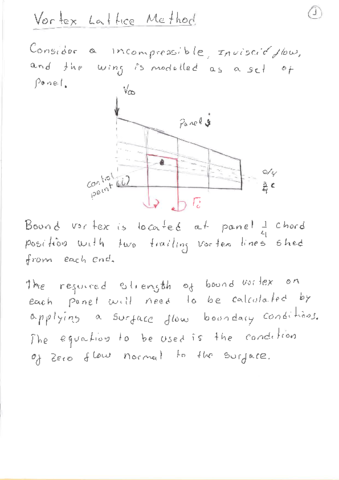 1
Vortex Lattice Method
Consider a incompressible, inviscid flow,
and the wing is modelled as a set of
panel.
V∞
Panel j
c/4
3/4 c
control
point (i)
Γi
Bound vortex is located at panel 1/4 chord
position with two trailing vortex lines shed
from each end.
The required strength of bound vortex on
each panel will need to be calculated by
applying a surface flow boundary conditions.
The equation to be used is the condition
of zero flow normal to the surface.